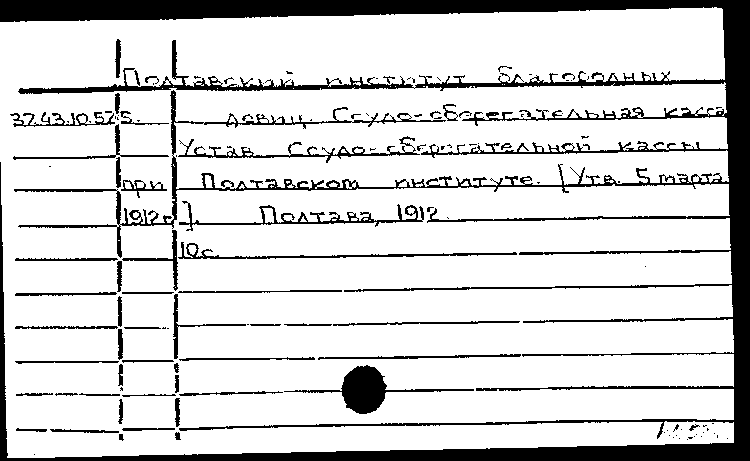 Полтавский институт благородных
37.43.10.575. девиц. Ссудо-сберегательная касса
Устав Ссудо-сберегательной кассы
при Полтавском институте. [Утв. 5 марта
1912 г.]. Полтава, 1912.
10 с.